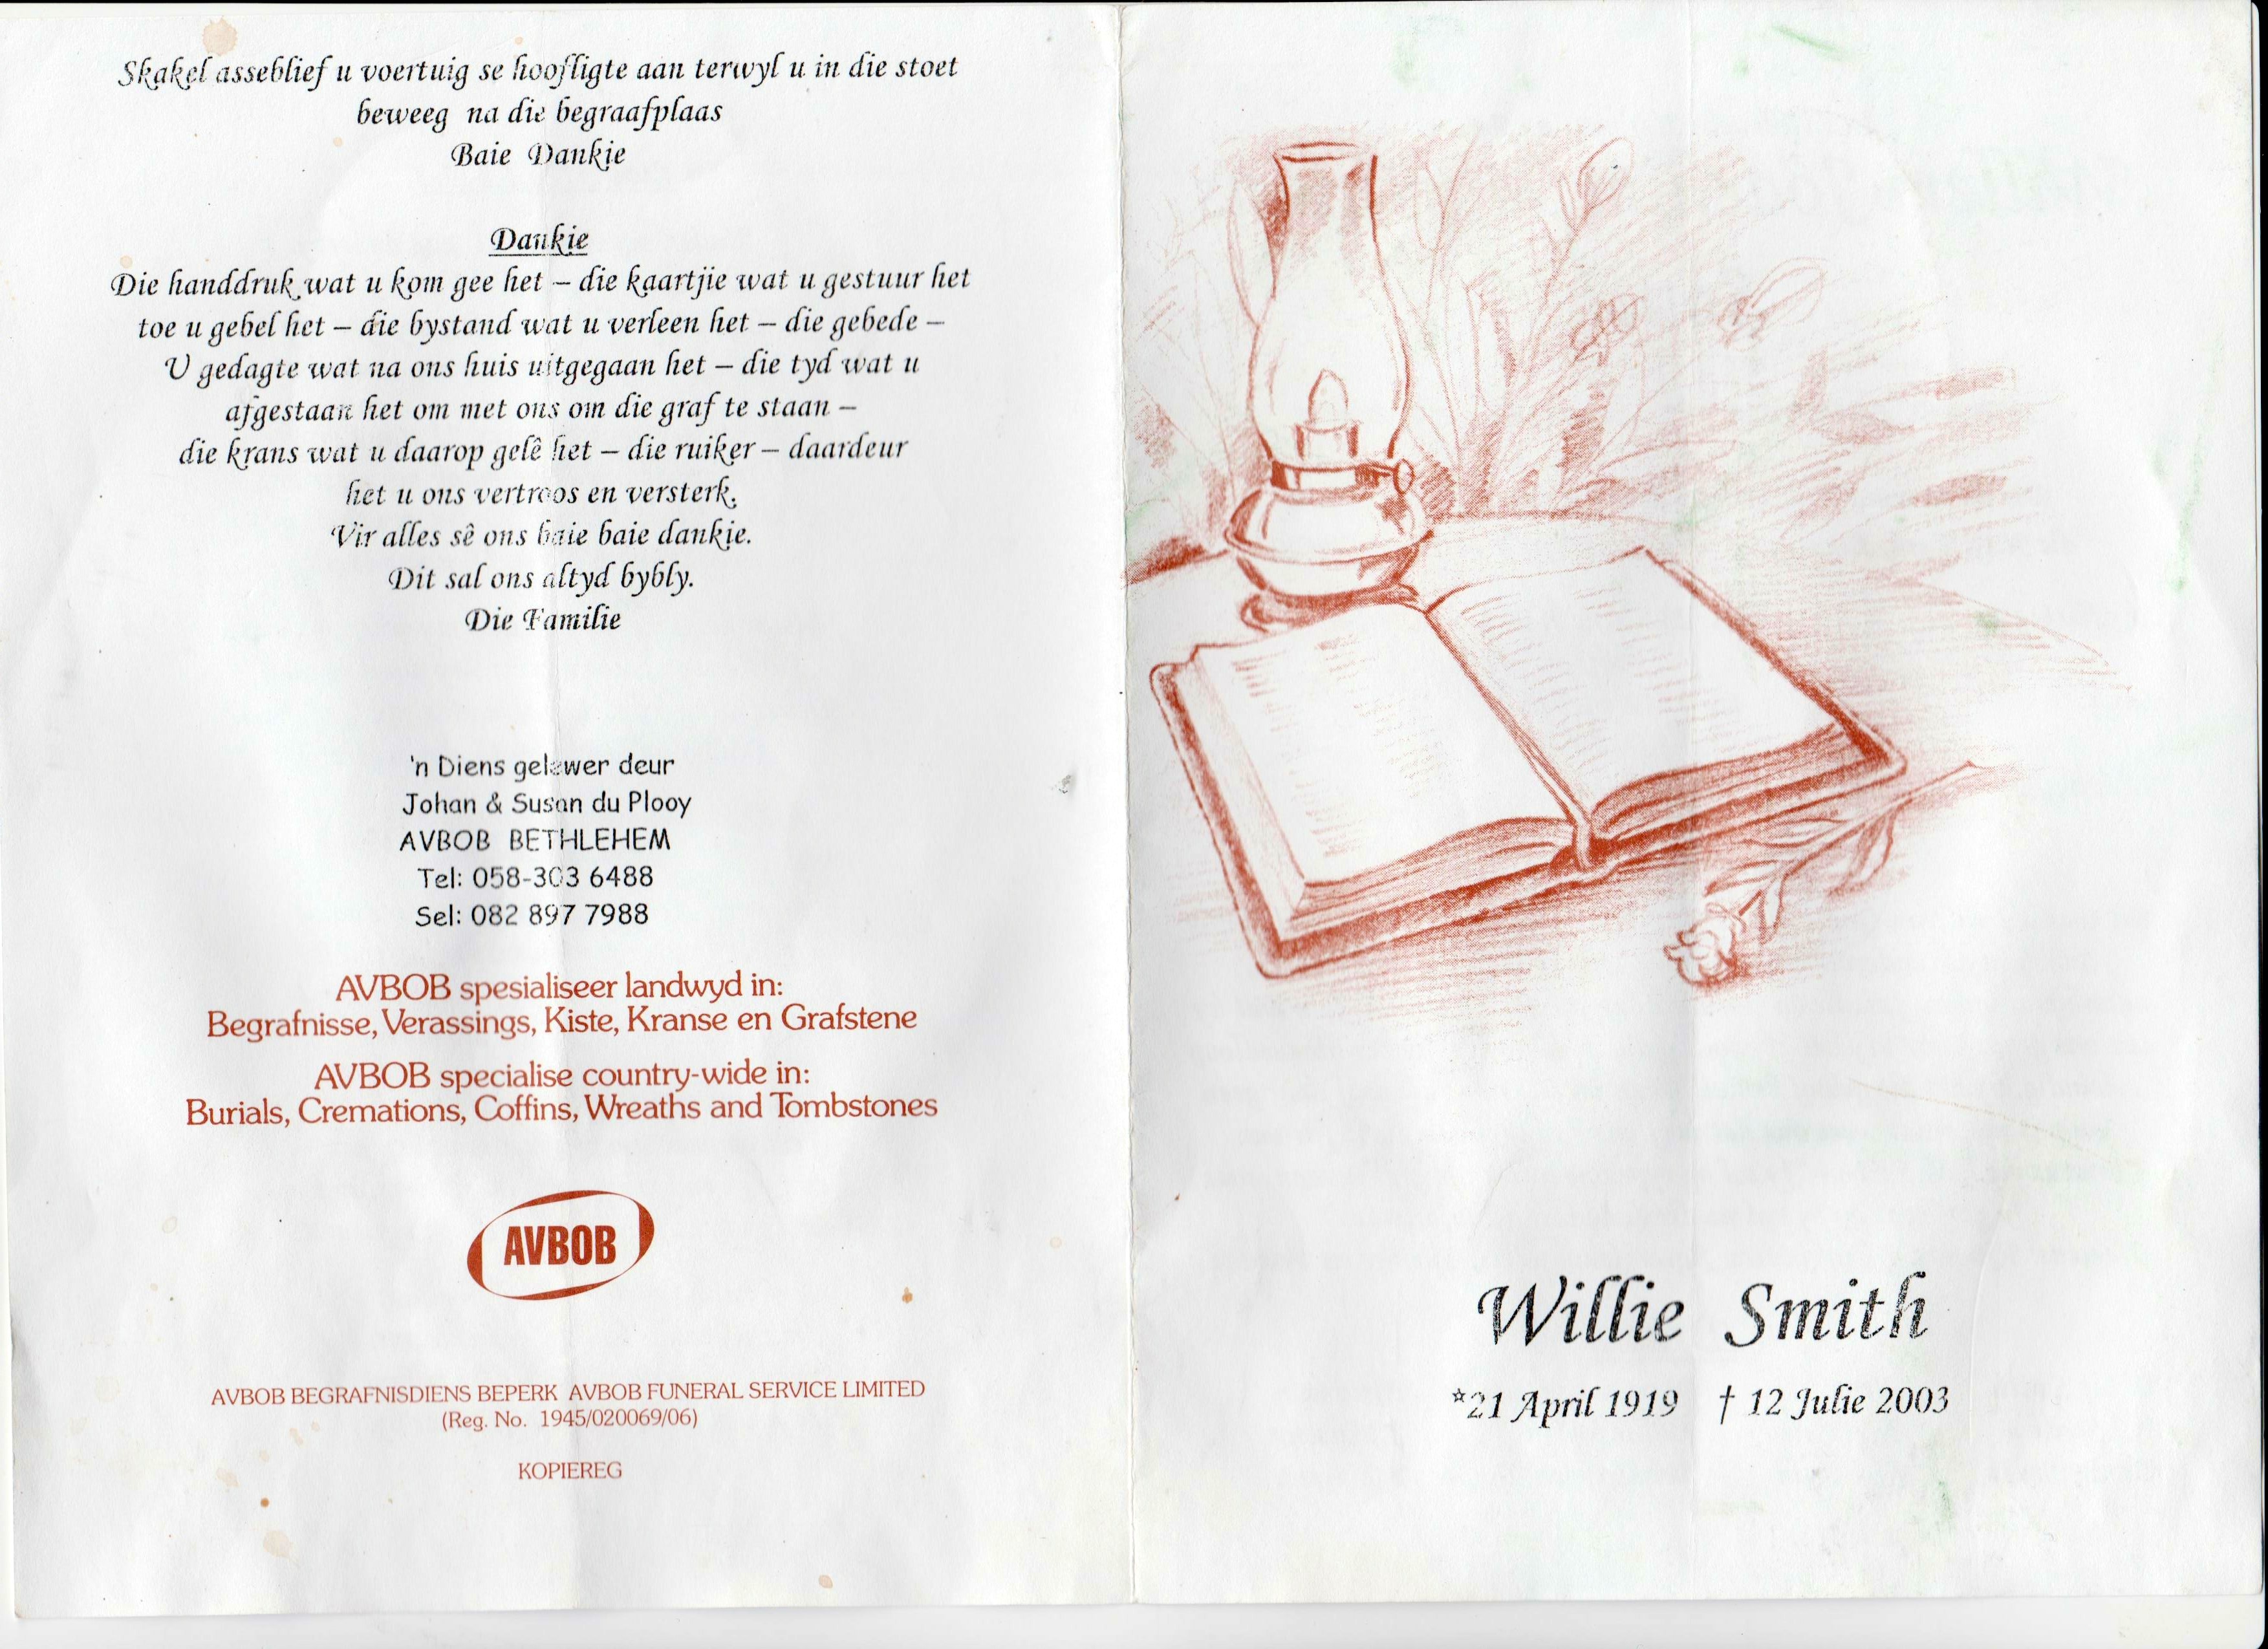 Skakel asseblief u voertuig se hoofligte aan terwyl u in die stoet
beweeg na die begraafplaas
Baie Dankie
Dankie
Die handdruk wat u kom gee het – die kaartjie wat u gestuur het
toe u gebel het – die bystand wat u verleen het – die gebede –
U gedagte wat na ons huis uitgegaan het – die tyd wat u
afgestaan het om met ons om die graf te staan –
die krans wat u daarop gelê het – die ruiker – daardeur
het u ons vertroos en versterk.
Vir alles sê ons baie baie dankie.
Dit sal ons altyd bybly.
Die Familie
'n Diens gelewer deur
Johan & Susan du Plooy
AVBOB BETHLEHEM
Tel: 058-303 6488
Sel: 082 897 7988
AVBOB spesialiseer landwyd in:
Begrafnisse, Verassings, Kiste, Kranse en Grafstene
AVBOB specialise country-wide in:
Burials, Cremations, Coffins, Wreaths and Tombstones
AVBOB
AVBOB BEGRAFNISDIENS BEPERK AVBOB FUNERAL SERVICE LIMITED
(Reg. No. 1945/020069/06)
KOPIEREG
Willie Smith
*21 April 1919 † 12 Julie 2003